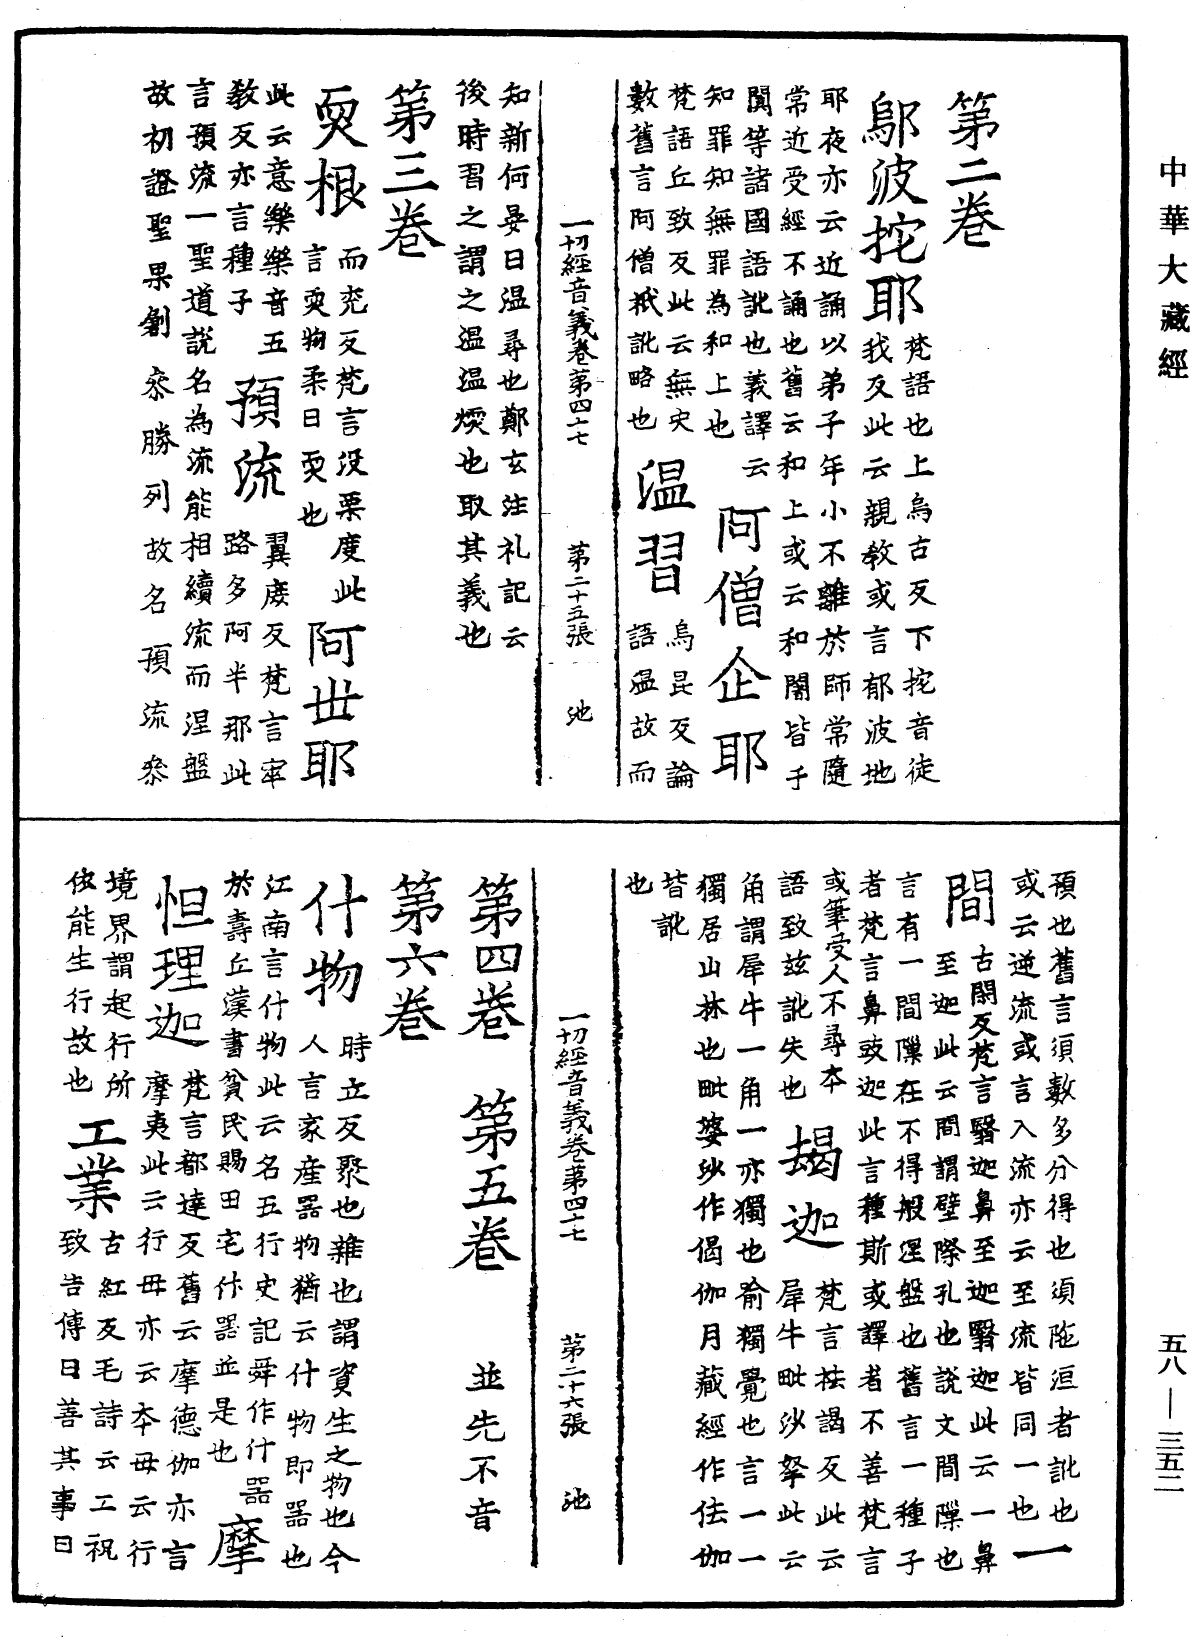 中華大藏經
第二卷
鄔波挓耶 梵語也上烏古反下挓音徒
我反此云親教或言郁波地
耶夜亦云近誦以弟子年小不離於師常隨
常近受經不誦也舊云和上或云和闍皆于
闐等諸國語訛也義譯云
知罪知無罪為和上也 阿僧企耶
梵語丘致反此云無央
數舊言阿僧祇訛略也 温習 烏昆反論
語温故而
一切經音義卷第四十七 第二十五張 池
知新何晏曰温尋也鄭玄注礼記云
後時習之謂之温温燸也取其義也
第三卷
耎根 而兖反梵言没栗度此
言耎物柔曰耎也 阿世耶
此云意樂樂音五
教反亦言種子 預流 翼庶反梵言窣
路多阿半那此
言預流一聖道說名為流能相續流而涅盤
故初證聖果創叅勝列故名預流叅
預也舊言須數多分得也須陁洹者訛也
或云逆流或言入流亦云至流皆同一也 一
間 古閑反梵言翳迦鼻至迦翳迦此云一鼻
至迦此云間謂壁際孔也說文間隟也
言有一間隟在不得般涅盤也舊言一種子
者梵言鼻豉迦此言種斯或譯者不善梵言
或筆受人不尋本
語致玆訛失也 朅迦 梵言袪謁反此云
犀牛毗沙拏此云
角謂犀牛一角一亦獨也喻獨覺也言一一
獨居山林也毗婆沙作偈伽月藏經作佉伽
皆訛
也
一切經音義卷第四十七 第二十六張 池
第四卷 第五卷 並先不音
第六卷
什物 時立反聚也雜也謂資生之物也今
人言家產器物猶云什物即器也
江南言什物此云名五行史記舜作什器
於壽丘漢書貧民賜田宅什器並是也 摩
怛理迦 梵言都達反舊云摩德伽亦言
摩夷此云行母亦云本母云行
境界謂起行所
依能生行故也 工業 古紅反毛詩云工祝
致告傳曰善其事曰
五八—三五二